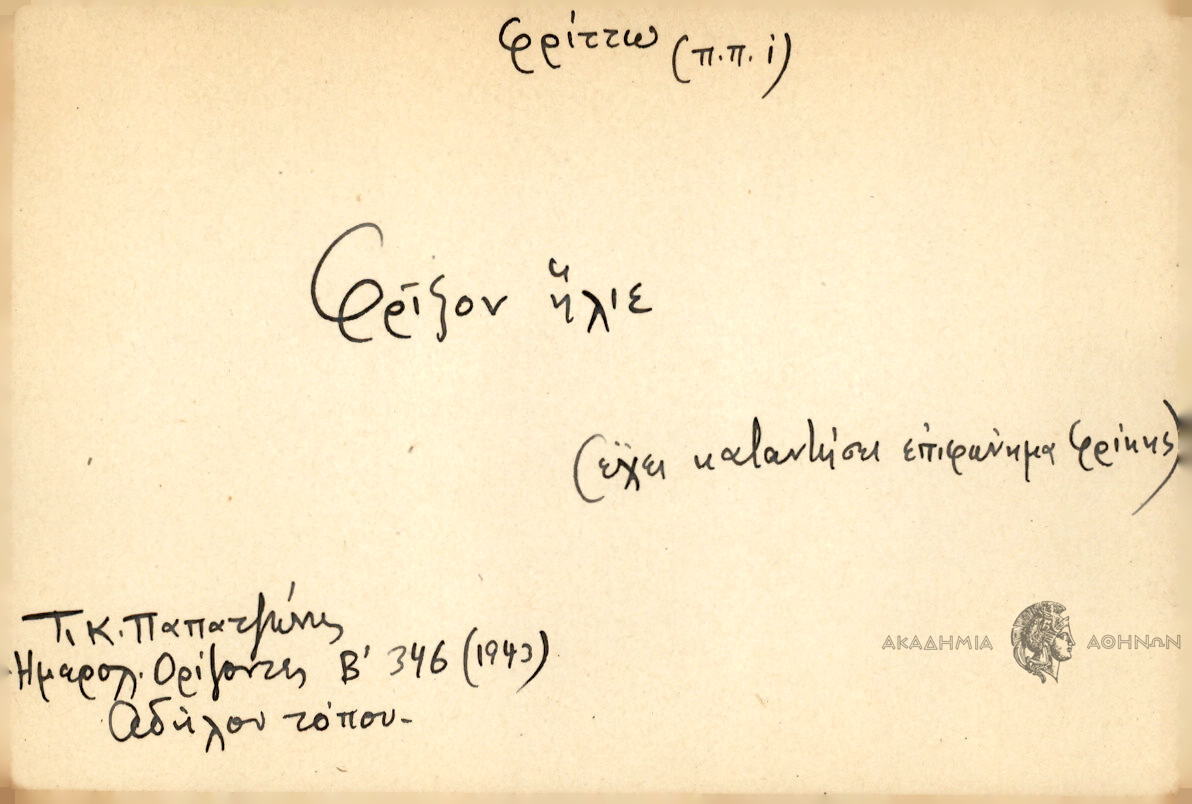 φρίττω (π.π. ἱ)
Φρῖξον ἥλιε
(ἔχει καταντήσει ἐπιφώνημα φρίκης)
Τ. Κ. Παπατζώνης
Ἡμερολ. Ὁρίζοντες Β' 346 (1943)
Ἀδήλου τόπου-
ΑΚΑΔΗΜΙΑ ΑΘΗΝΩΝ